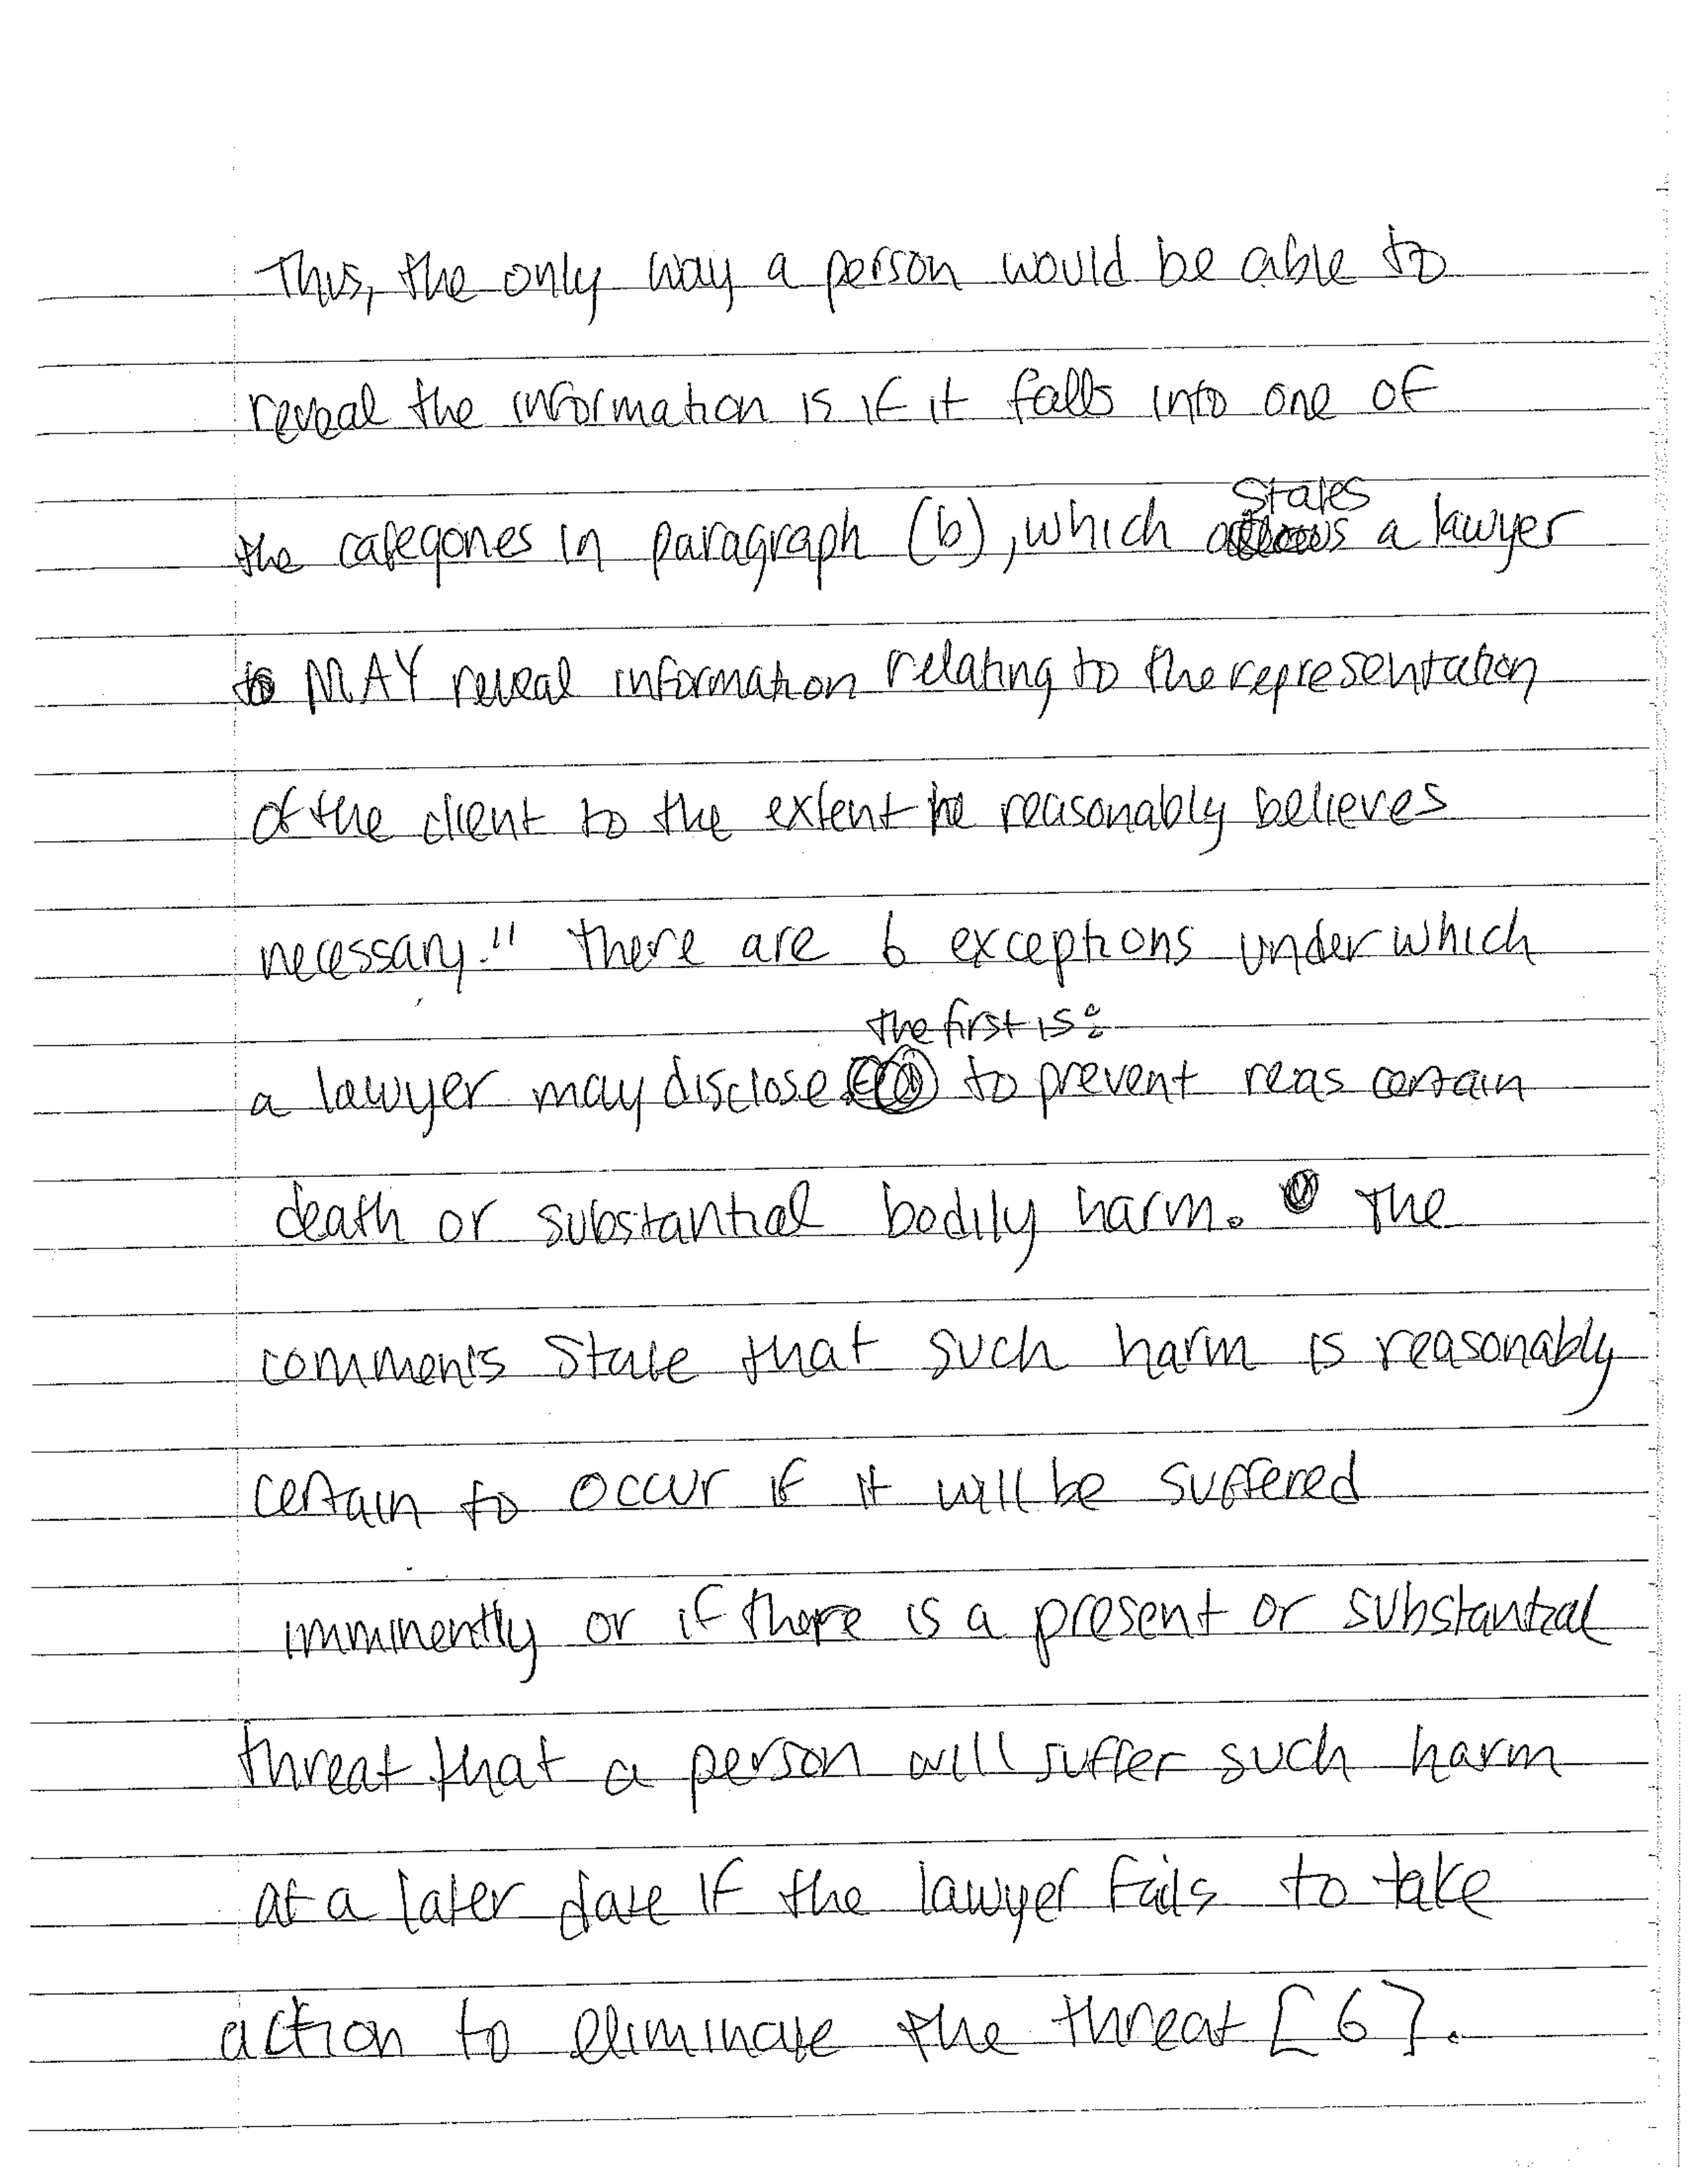 Thus, the only way a person would be able to
reveal the information is if it falls into one of
the categories in paragraph (b), which states a lawyer
MAY reveal information relating to the representation
of the client to the extent he reasonably believes
necessary." There are 6 exceptions under which
the first is:
a lawyer may disclose. to prevent reas certain
death or substantial bodily harm. The
comments state that such harm is reasonably
certain to occur if it will be suffered
imminently or if there is a present or substantial
threat that a person will suffer such harm
at a later date if the lawyer fails to take
action to eliminate the threat [6].